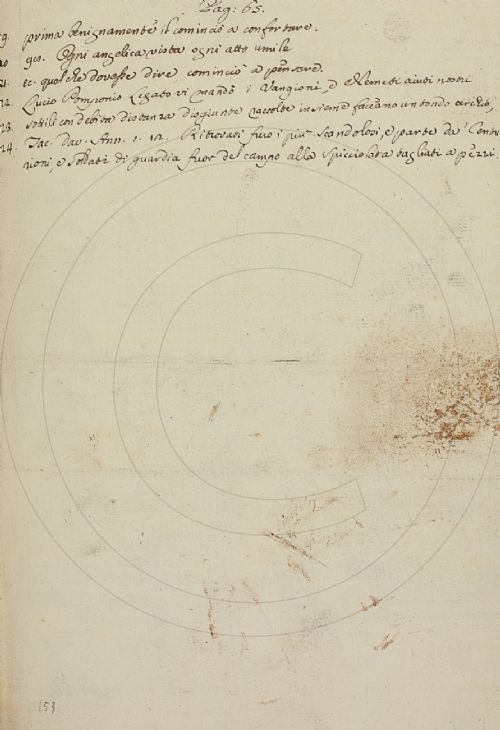 Pag: 65.
9. prima benignamente il cominciò a confortare.
20 ges. Ogni angelica vista ogni atto umile
21. ec. quel che dovesse dire cominciò a pensare.
22. Lucio Pomponio Legato vi mandò i Vangioni, e Nemeti aiuti nostri
23. sottili con debita distanza disgiunte raccolte insieme faceano un tondo cerchio,
24. Tac. Dav. Ann. 1. 12. Ritrovati furo i più scandolosi, e parte da' Centu
rioni, e soldati di guardia fuor del campo alla spicciolata tagliati a pezzi
153